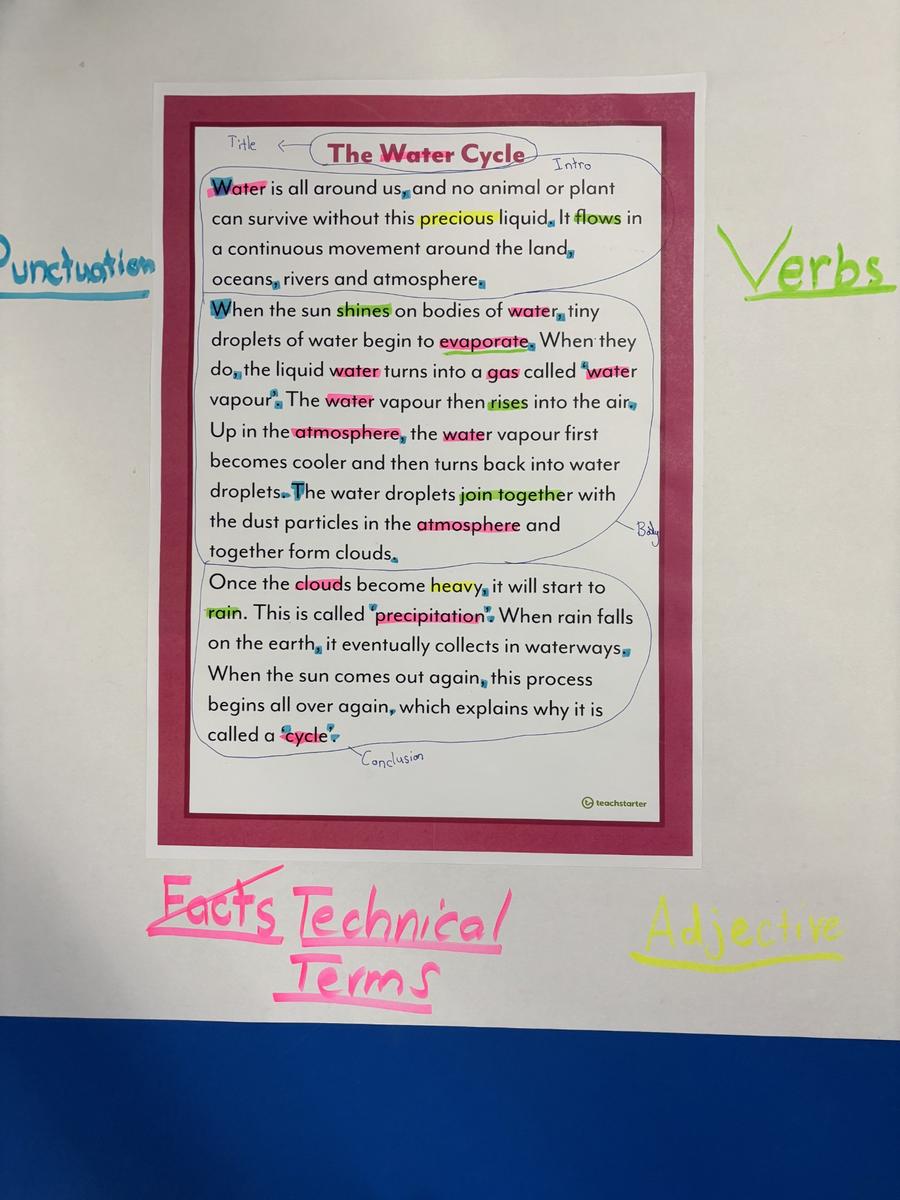 Title
The Water Cycle
Intro
Water is all around us, and no animal or plant
can survive without this precious liquid. It flows in
a continuous movement around the land,
oceans, rivers and atmosphere.
When the sun shines on bodies of water, tiny
droplets of water begin to evaporate. When they
do, the liquid water turns into a gas called ‘water
vapour’. The water vapour then rises into the air.
Up in the atmosphere, the water vapour first
becomes cooler and then turns back into water
droplets. The water droplets join together with
the dust particles in the atmosphere and
together form clouds.
Body
Once the clouds become heavy, it will start to
rain. This is called ‘precipitation’. When rain falls
on the earth, it eventually collects in waterways.
When the sun comes out again, this process
begins all over again, which explains why it is
called a ‘cycle’.
Conclusion
teachstarter
Punctuation
Verbs
Facts Technical
Terms
Adjective